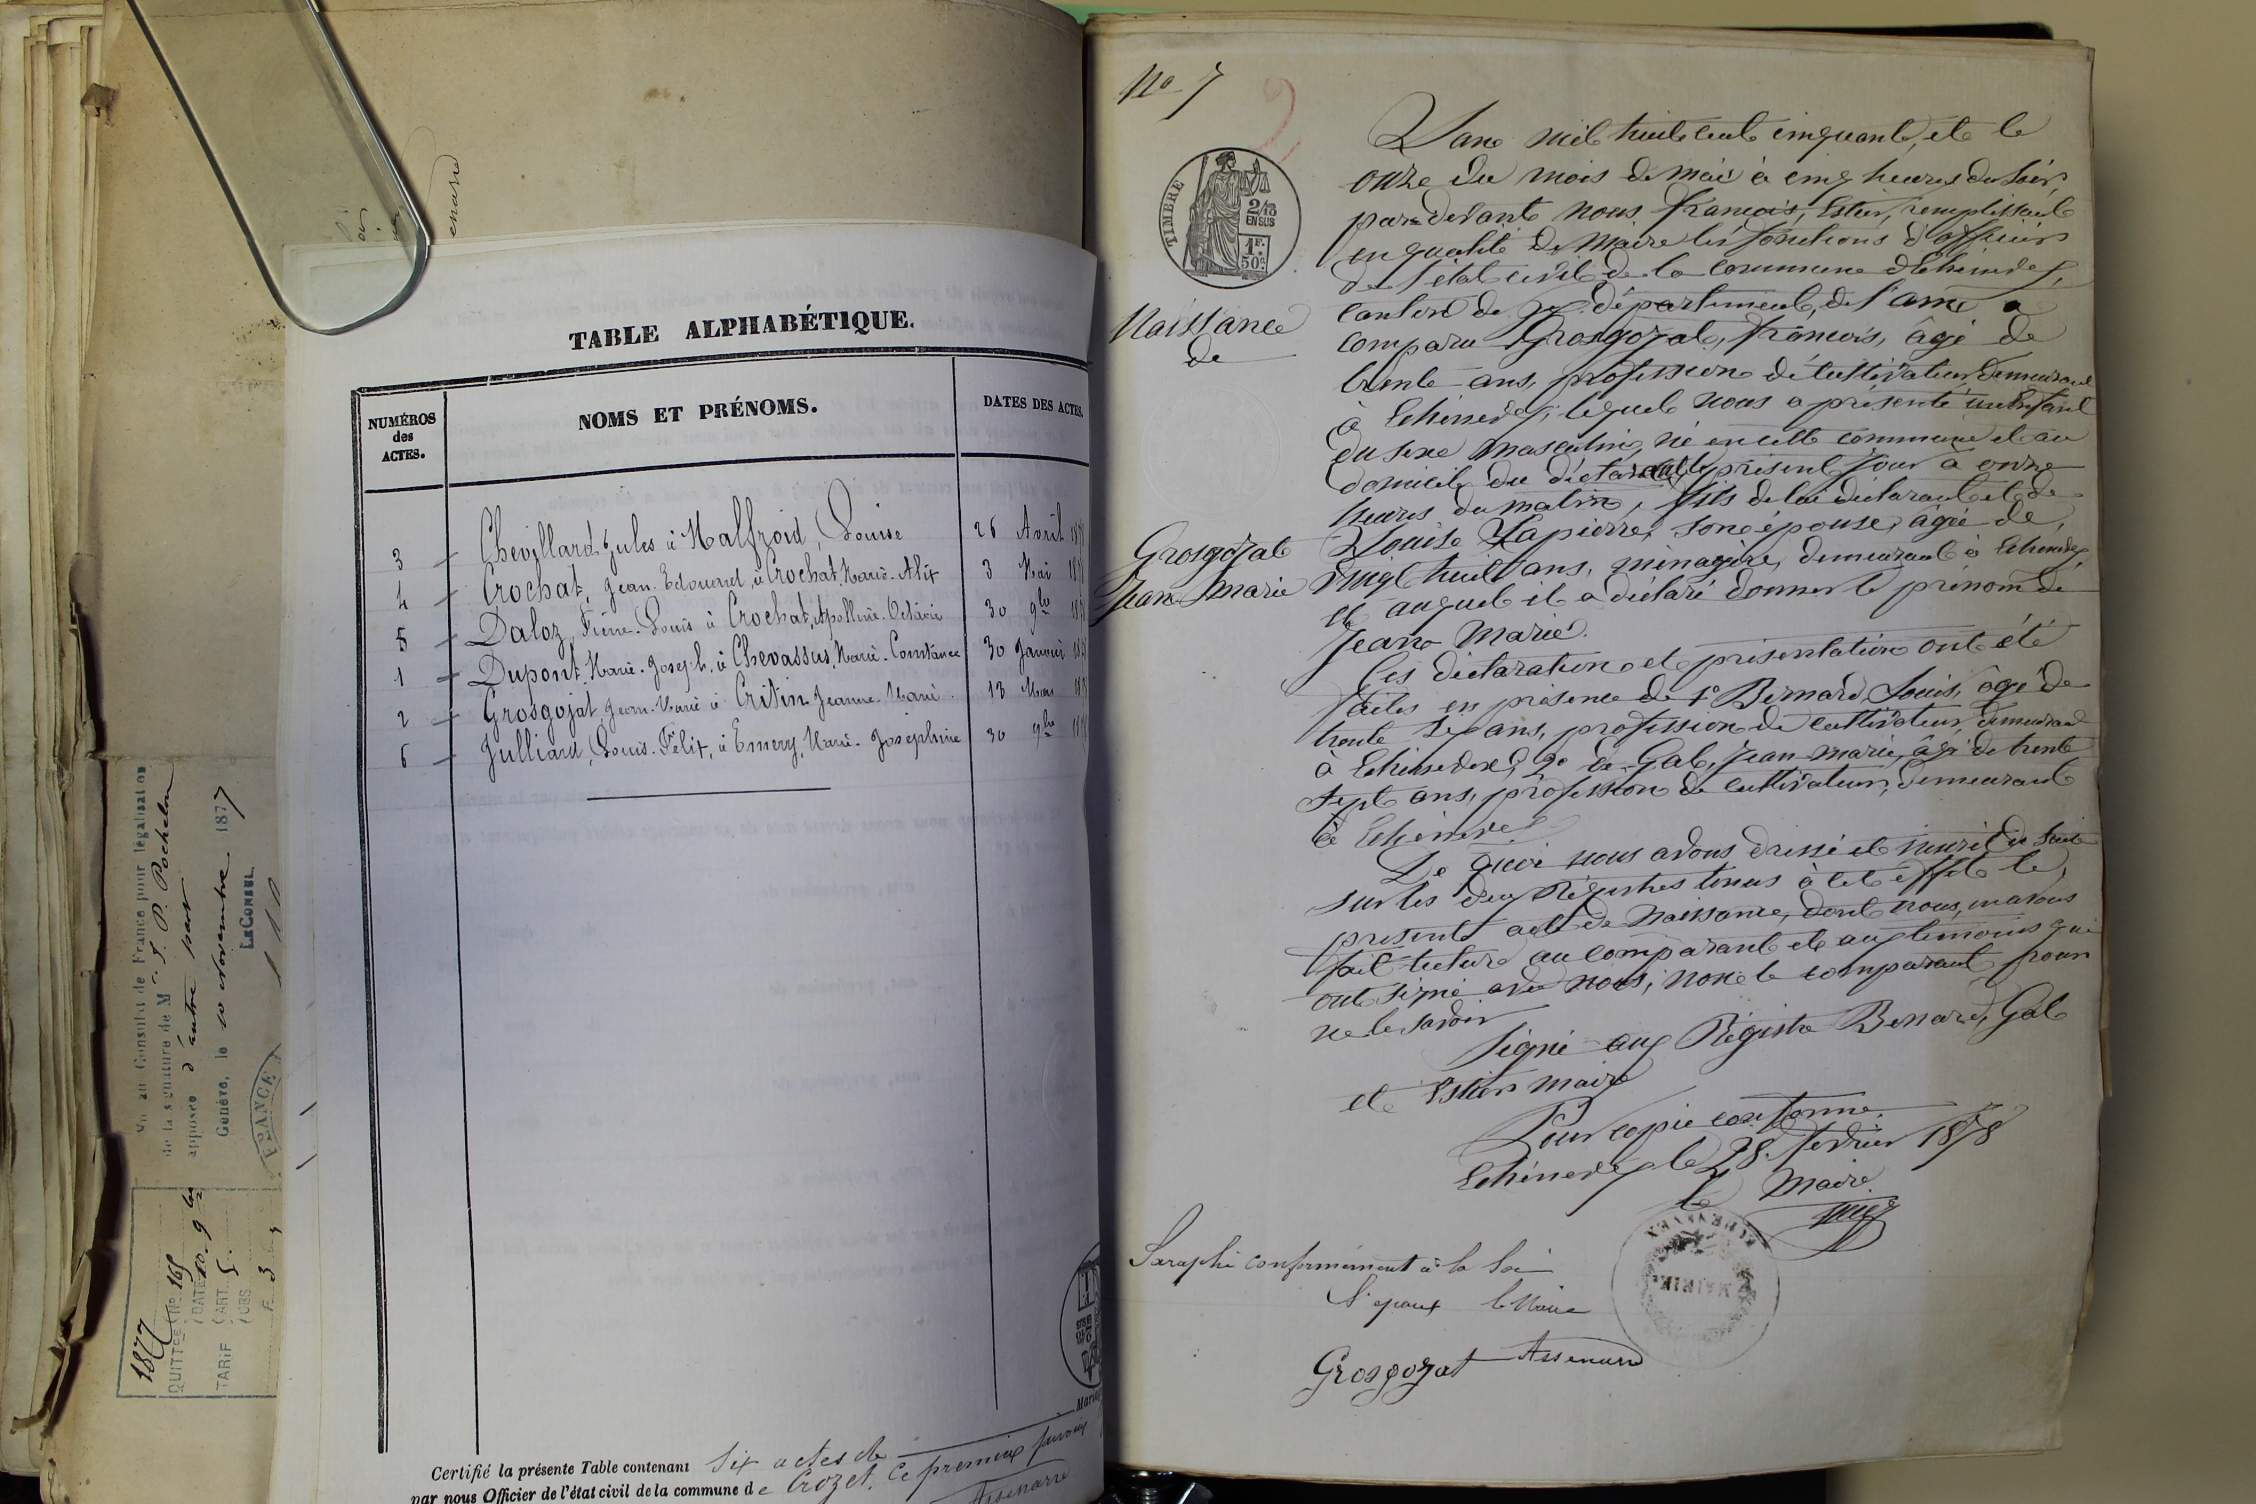 TABLE ALPHABÉTIQUE.
NUMÉROS
des
ACTES.
NOMS ET PRÉNOMS.
DATES DES ACTES.
3 Chevillard Jules à Malfroid, Louise 26 Avril
4 Crochat, Jean Edouard, à Crochat, Marie-Alix 3 Mai
5 Daloz, Louis à Crochat, Apolline-Octavie 30 9bre
1 Dupont, Marie-Joseph, à Chevassus, Marie-Constance 30 Janvier
2 Grosgojat, Jean-Marie à Critin Jeanne-Marie 13 Mars
6 Julliard, Louis-Félix, à Emery, Marie-Joséphine 30 9bre
Certifié la présente Table contenant six actes de
par nous Officier de l'état civil de la commune de Crozet, Ce premier janvier
Assenarre
Vu au Consulat de France pour légalisation
de la signature de Mr J. P. Pochelon
apposée d'autre part
Genève, le 10 Novembre 1877
LE CONSUL
FRANCE
1877
QUITTce No 165
DATE 10. 9bre
TARIF ART 5.
OBS
No 7
TIMBRE
2/10
EN SUS
1F.
50c.
Naissance
de
Grosgozat
Jean Marie
L'an mil huit cent cinquante, et le
onze du mois de mai à cinq heures du soir,
par-devant nous François, Estier, remplissant
en qualité de Maire les fonctions d'officier
de l'état civil de la commune d'Echenevex,
canton de Gex département, de l'ain a
comparu Grosgozat, François, âgé de
trente ans, profession de cultivateur, demeurant
à Echenevex, lequel nous a présenté un enfant
du sexe masculin, né en cette commune et au
domicile du déclarant le présent jour à onze
heures du matin, fils de lui déclarant et de
Louise Lapierre, son épouse, âgée de,
vingt huit ans, ménagère, demeurant à Echenevex,
et auquel il a déclaré donner le prénom de
Jean Marie.
Ces déclaration et présentation ont été
faites en présence de 1o Bernard, Louis, âgé de
trente ans, profession de cultivateur demeurant
à Echenevex, 2o de Gal, Jean-marie, âgé de trente
sept ans, profession de cultivateur, demeurant
à Echenevex
De quoi nous avons dressé et inscrit de suite
sur les deux Régistres tenus à cet effet le
présent acte de Naissance, dont nous, en avons
fait lecture au comparant et aux témoins qui
ont signé avec nous, non le comparant pour
ne le savoir
Signé aux Régistre Bernard, Gal
et Estier maire
Pour copie conforme.
Echenevex le 28 fevrier 1878
le Maire
MAIRIE
ECHENEVEX
Paraphé conformément à la loi
L'époux le Maire
Grosgozat Assenarre